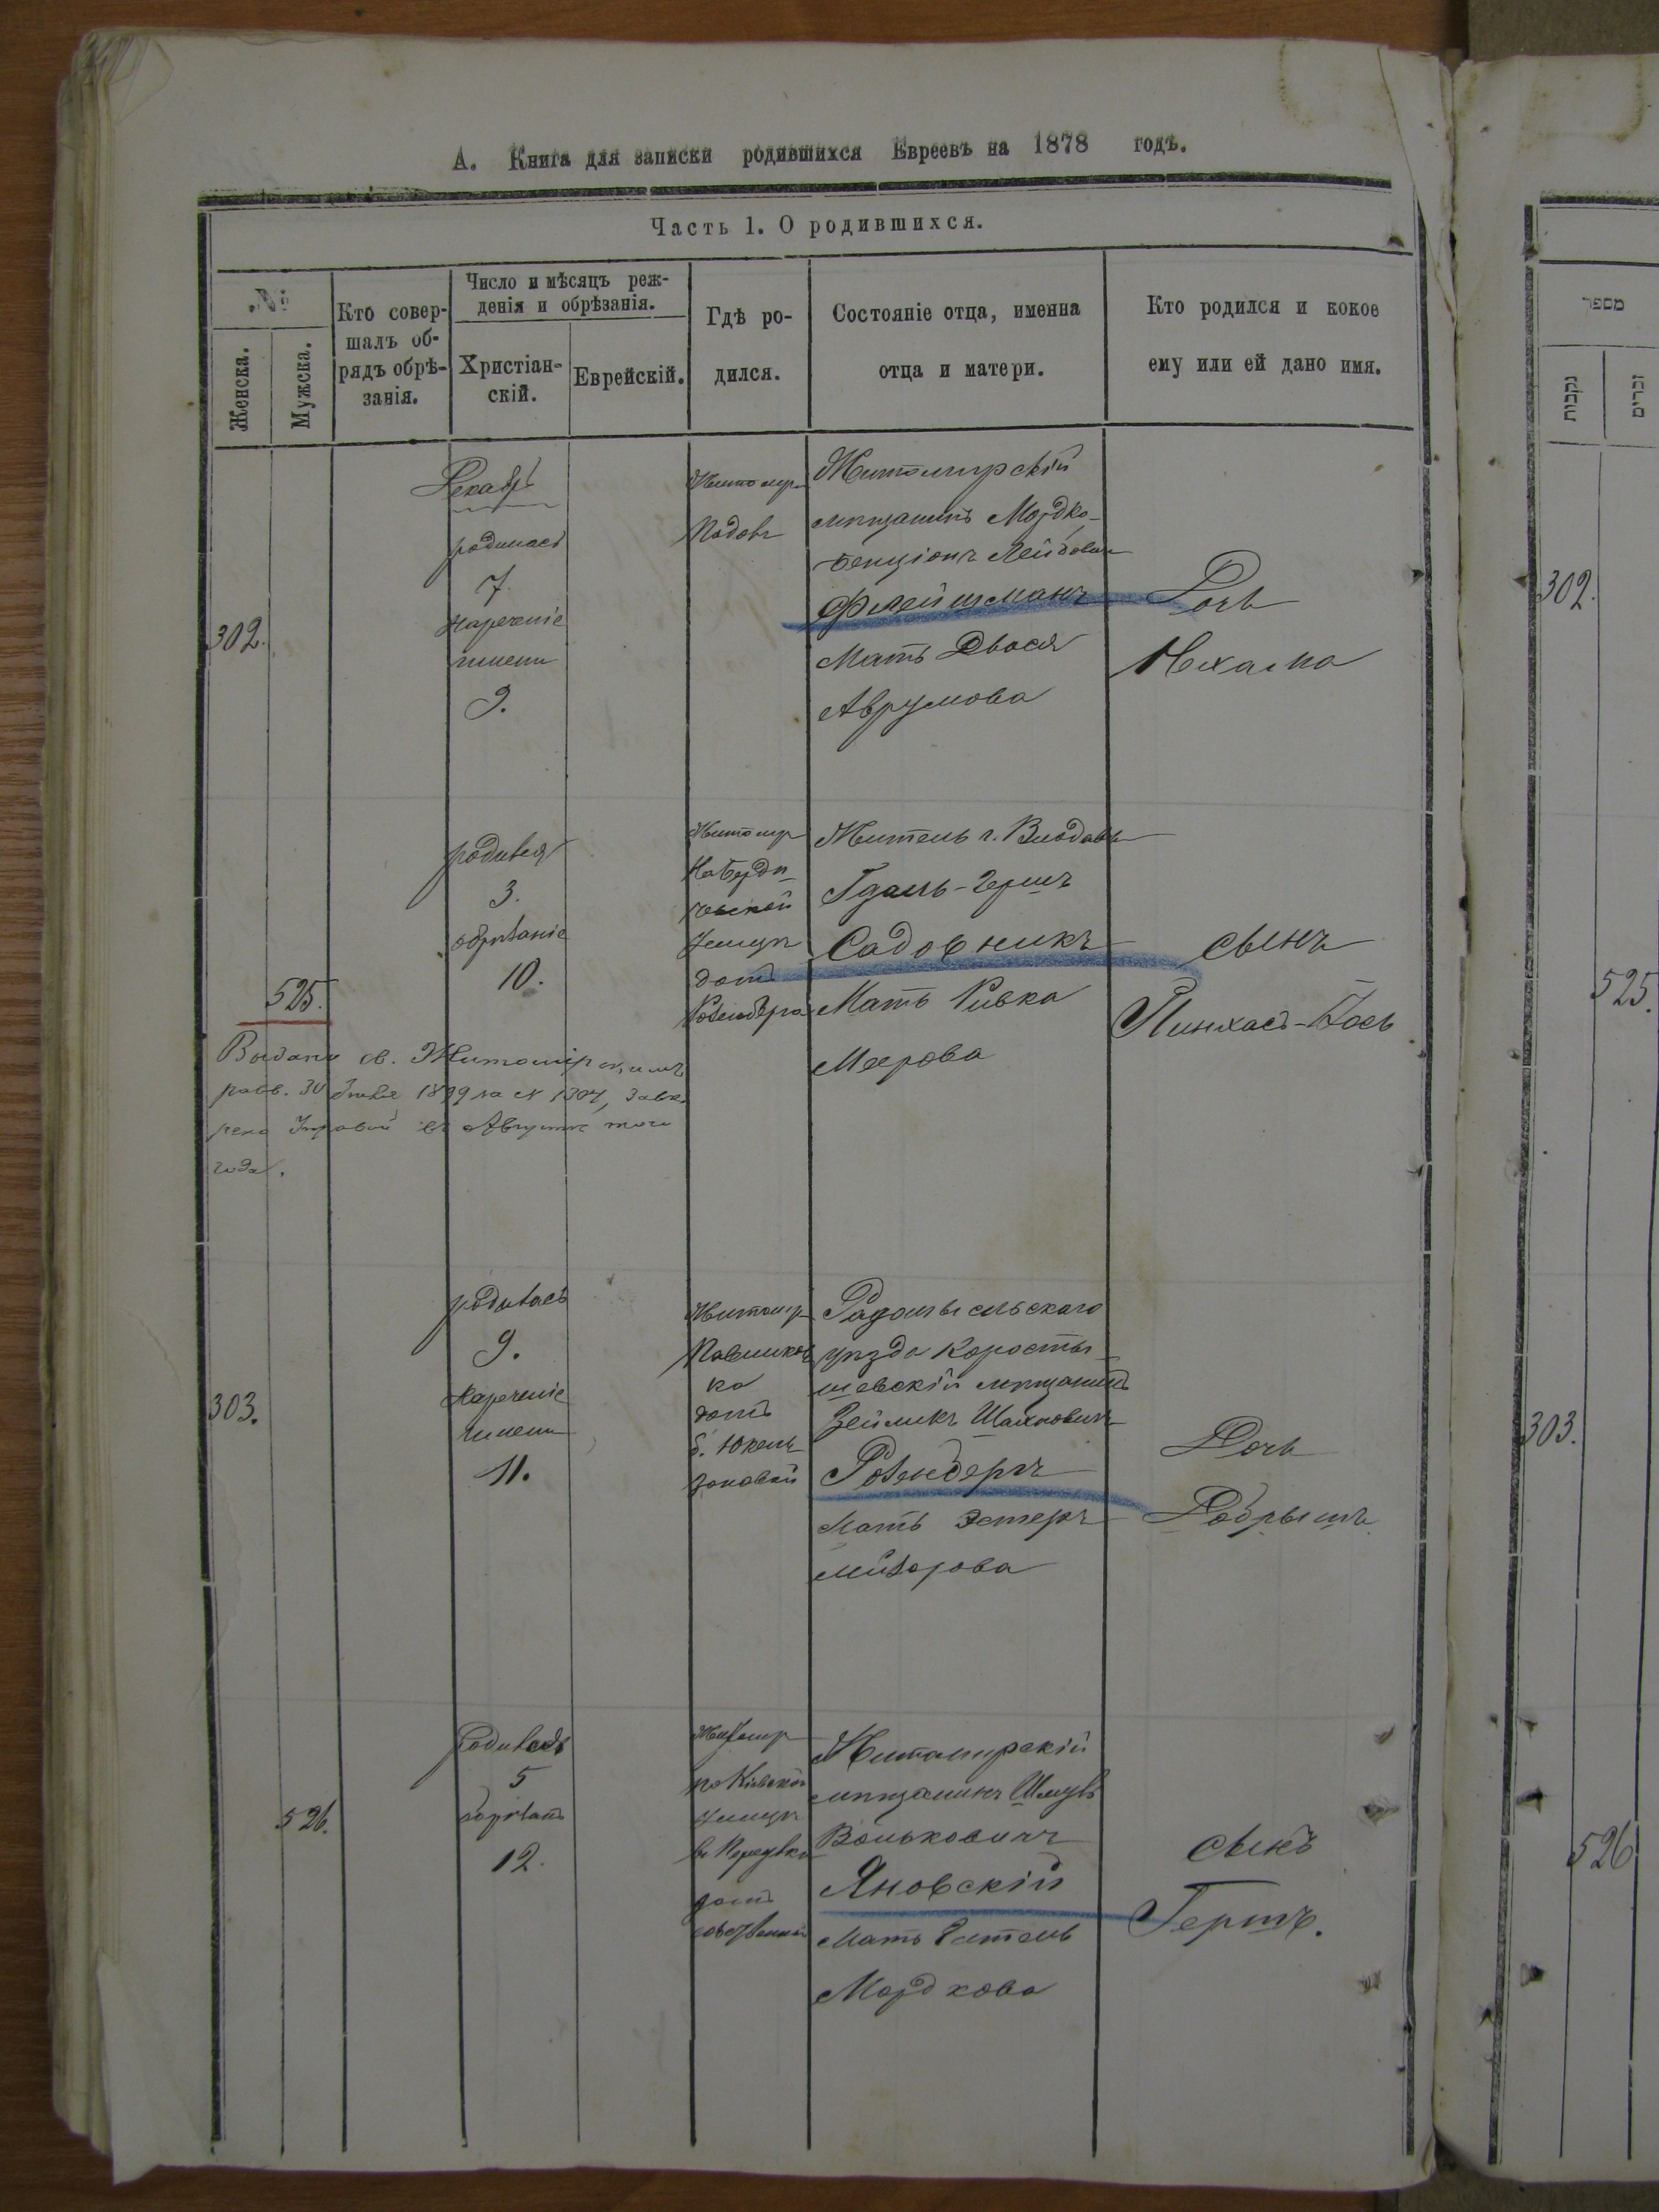 А. Книга для записки родившихся Евреевъ на 1878 годъ.
Часть 1. О родившихся.
№
Женска.
Мужска.
Кто совер-
шалъ об-
рядъ обрѣ-
занія.
Число и мѣсяцъ реж-
денія и обрѣзанія.
Христіан-
скій.
Еврейскій.
Гдѣ ро-
дился.
Состояніе отца, именна
отца и матери.
Кто родился и кокое
ему или ей дано имя.
302.
Декабрь
родилась
7.
Нареченіе
имени
9.
Житомір
Житомирскій
мѣщанинъ Мордко-
Бенціонъ Лейбович
Флейшманъ
Мать Двося
Аврумова
Дочь
Нехама
525.
родился
3.
обрѣзаніе
10.
Житомир
На Берди-
чевской
улицѣ
домъ
Розенберга
Житель г. Влодавы
Гдаль-Герш
Садовникъ
Мать Ривка
Меерова
сынъ
Пинхасъ-Іось
Выдано св. Житомірскимъ
года.
303.
родилась
9.
Нареченіе
имени
11.
Житомир
домъ
Радомысльскаго
уѣзда Коросты-
шевскій мѣщанинъ
Зейликъ Шахновичъ
Розенбергъ
Мать Эстеръ
Дочь
Добрышъ
526.
Родился
5
обрѣзаніе
12.
Житомир
по Кіевской
улицѣ
домъ
собственный
Житомирскій
мѣщанинъ Шмуль
Вольковичъ
Яновскій
Мать Эстель
Мордкова
сынъ
Гершъ.
מספר
נקבות
זכרים
302.
525.
303.
526